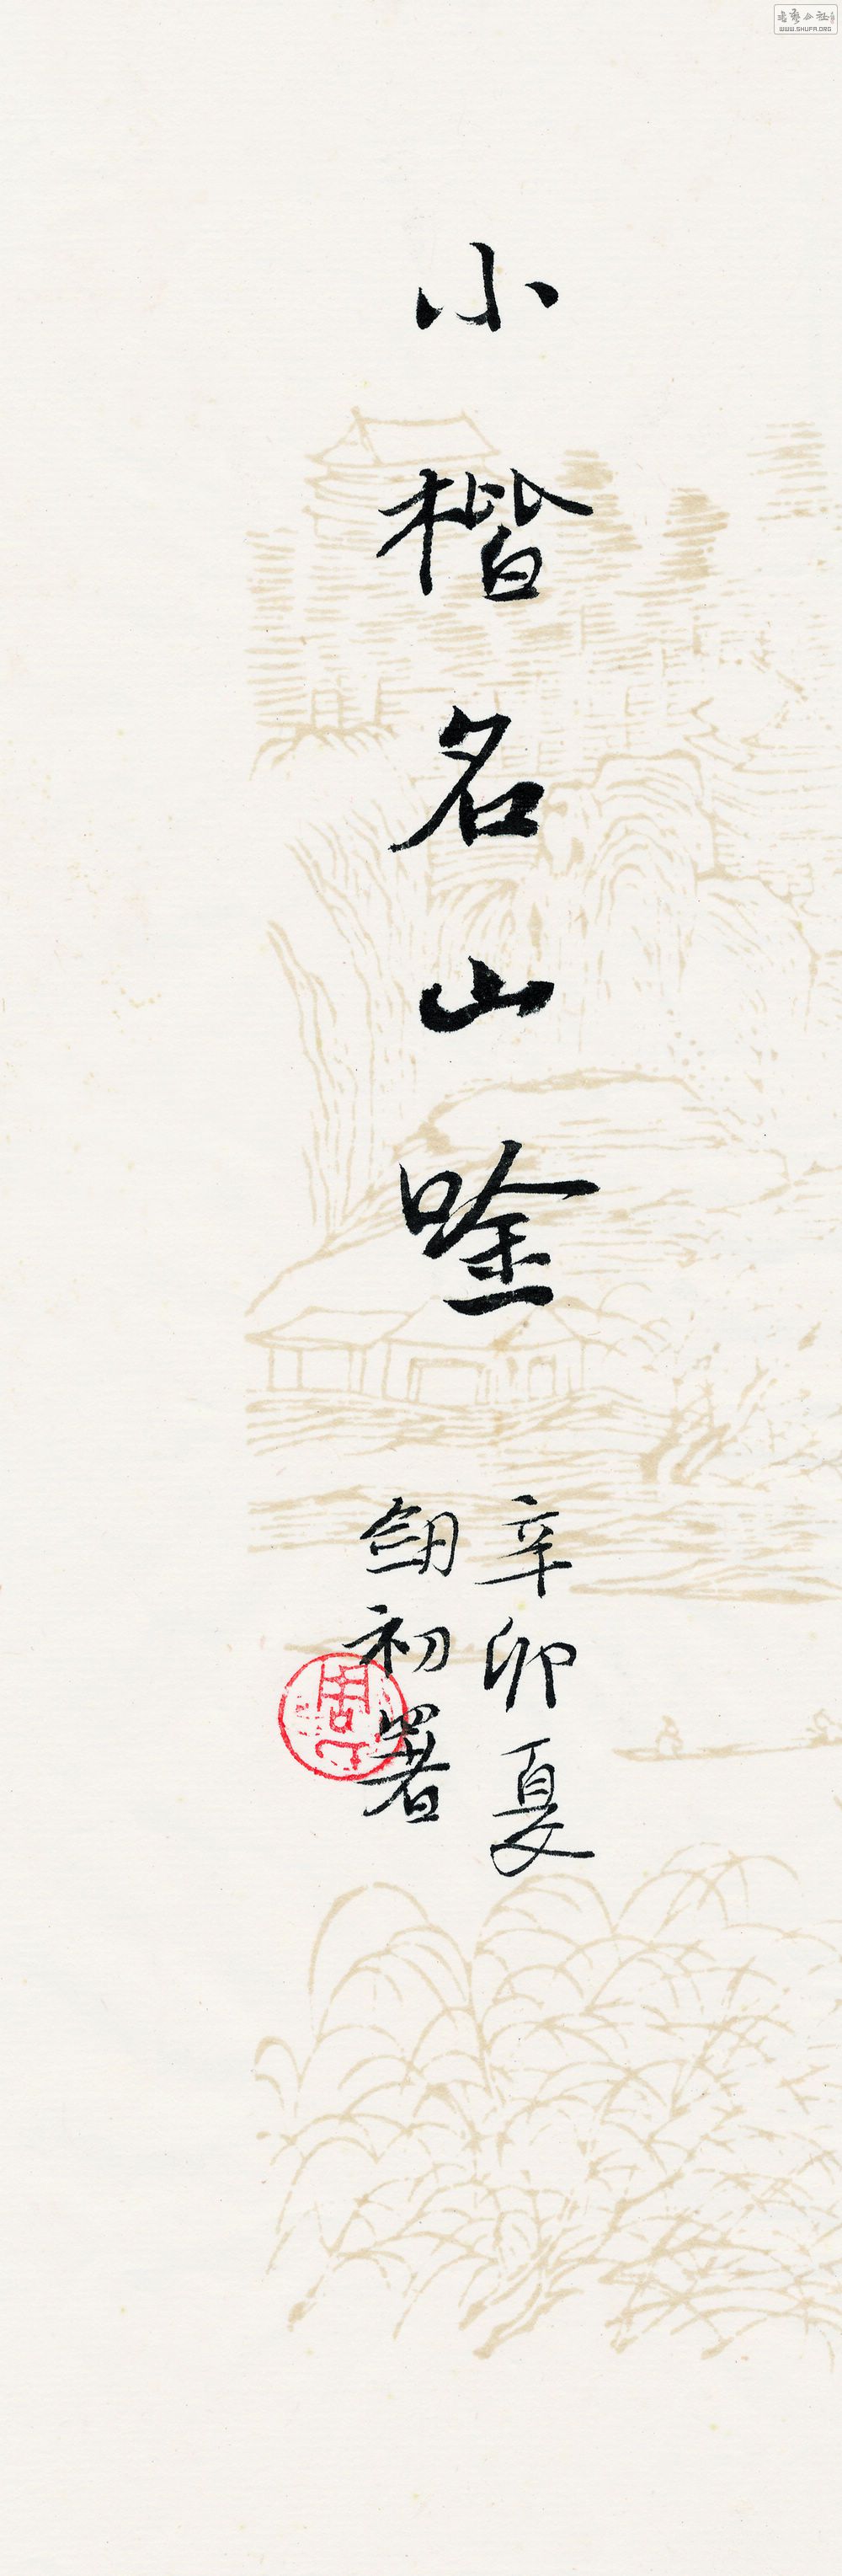 書藝公社
WWW.SHUFA.ORG
小楷名山唫
辛卯夏
劒初署
周